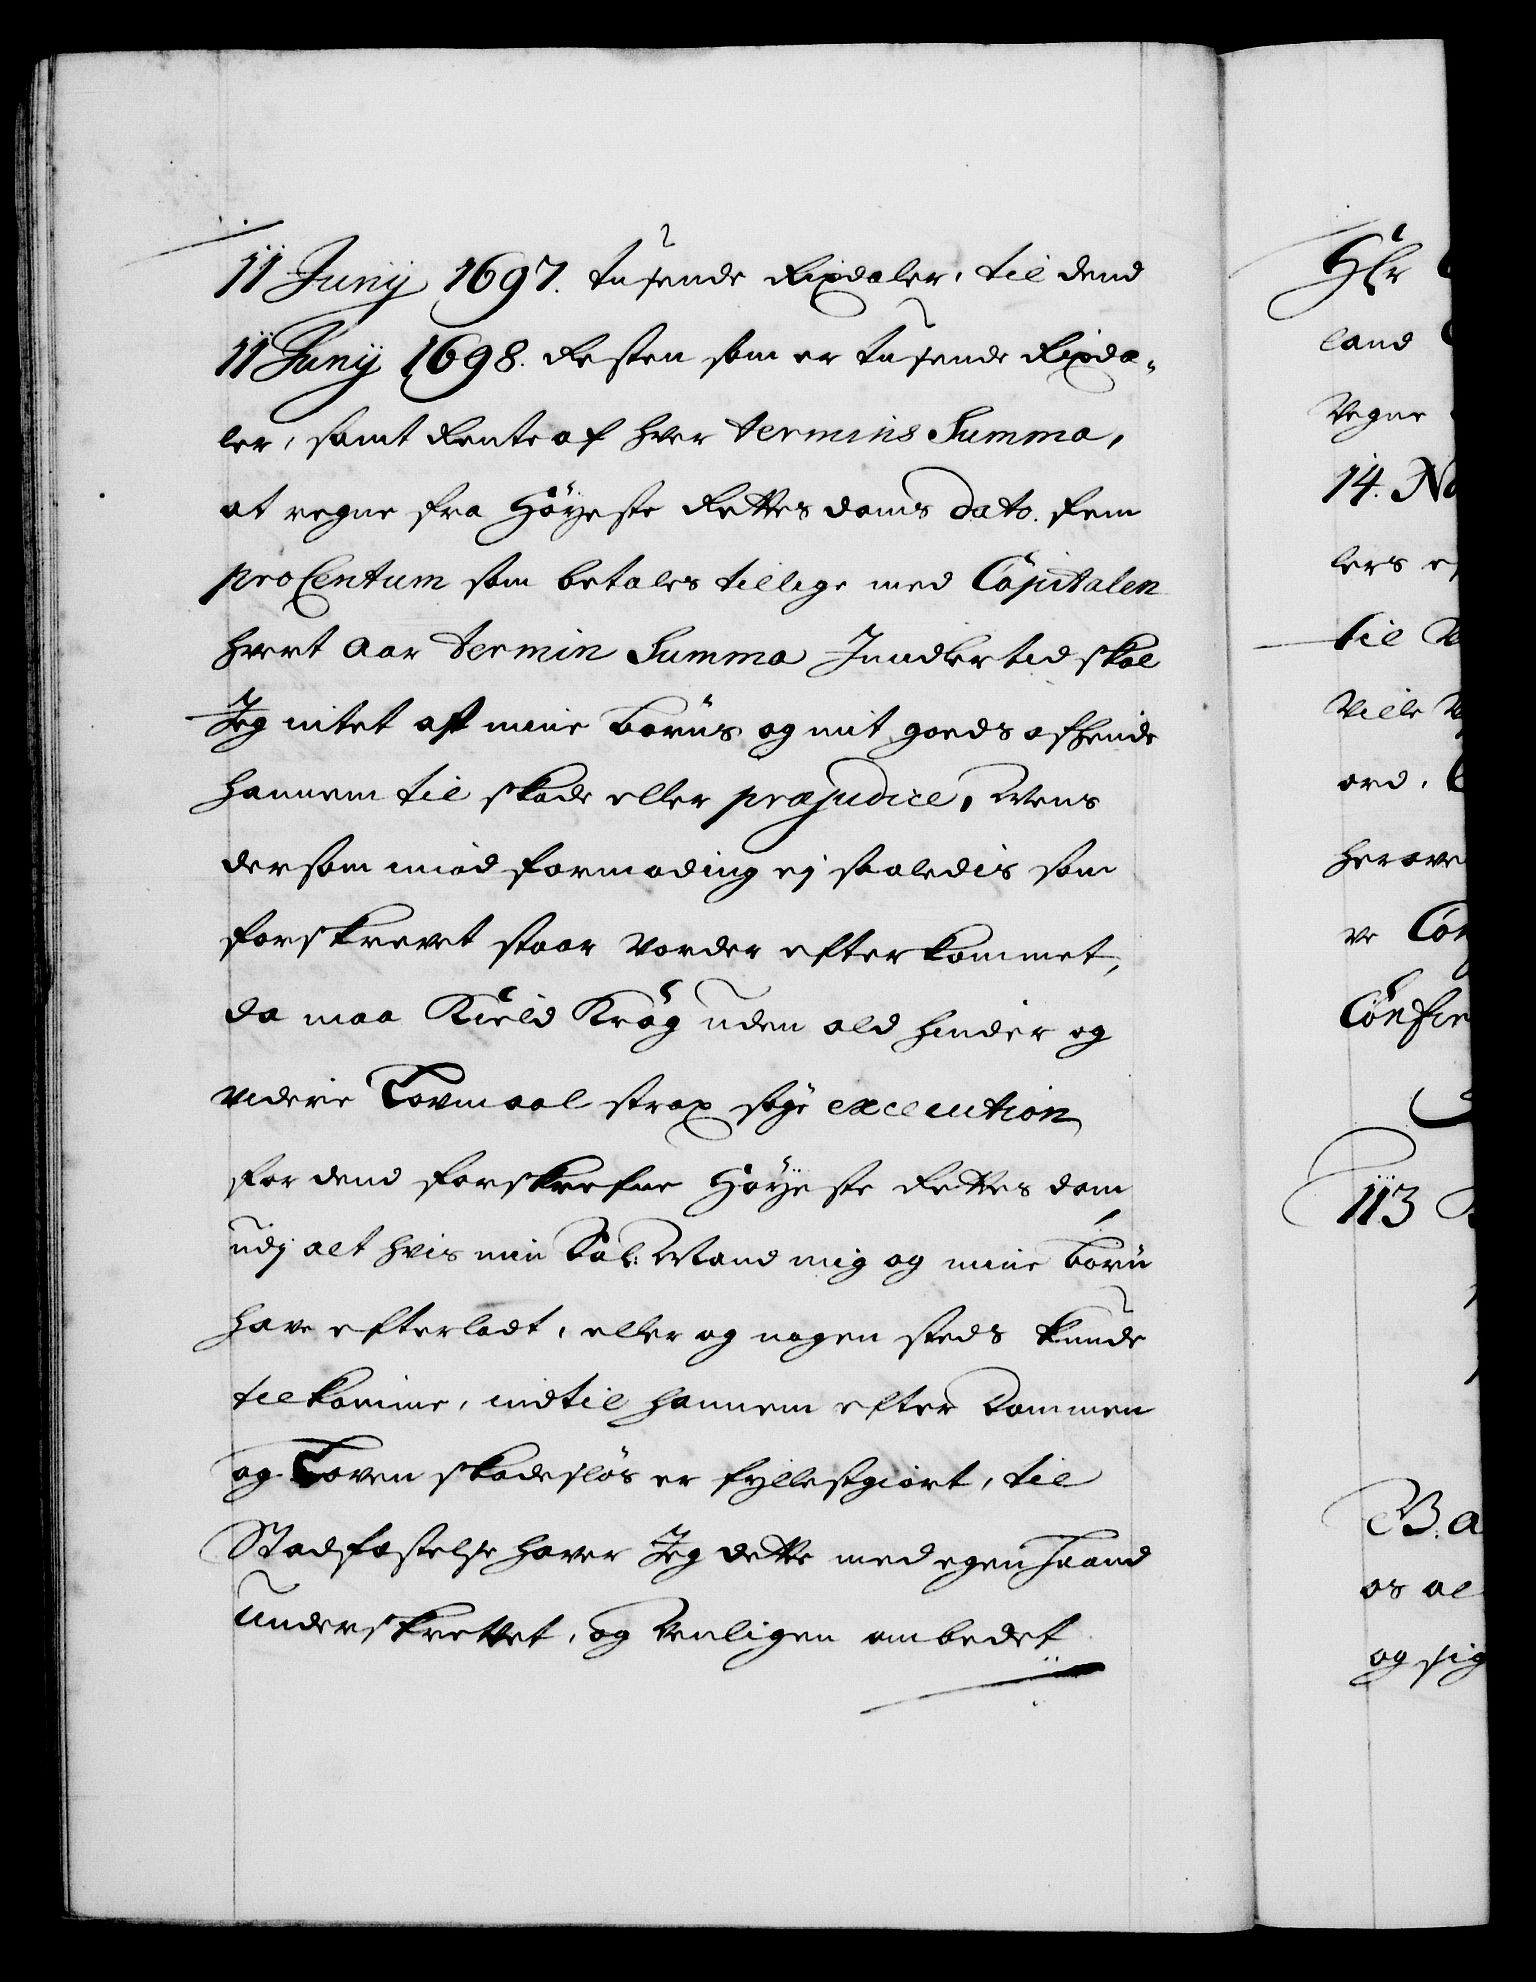 11 Junij 1697. tusende Rixdaler, til dend
11 Junij 1698. Resten som er tusende Rixda-
ler, samt Rente af hver termins Summa,
at regne fra Höyeste Rettes doms dato. fem
proCentum som betales tillige med Capitalen
hvert Aar termin Summa Immidlertid skal
Jeg intet aff mine Börns og mit goeds afhende
hannem til skade eller præjudice, Mens
dersom imod formoding ej saaledis som
forskrevet staar vorder efterkommet,
da maa Kield Krag uden ald hinder og
videre Lovmaal strax søge execution
for dend forskrefne Höyeste Rettes dom
udj alt hvis min Sal: Mand mig og mine Börn
have efterladt, eller og nogen steds kunde
tilkomme, indtil hannem efter Dommen
og Loven skadeslös er fyllestgiort, til
Stadfæstelse haver Jeg dette med egen Haand
Underskrevet, og venligen ombedet
Hr
land
Vegne
14. No
lers
til
Ville
ord,
herove
ve Con
Confir
113
B. a
os al
og sig